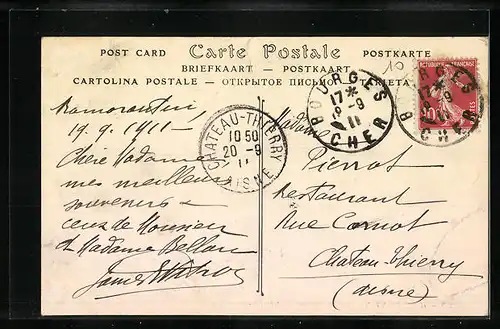 POST CARD Carte Postale POSTKARTE
BRIEFKAART — POSTKAART
CARTOLINA POSTALE - ОТКРЫТОЕ ПИСЬМО
Romorantin
19.9/1911
Chère Madame
mes meilleurs
souvenirs &
ceux de Monsieur
& Madame Bellon
CHATEAU-THIERRY
10 50
20 -9
11
AISNE
BOURGES
17*
-9
11
CHER
10
BOURGES
17*
-9
11
CHER
Madame
Pierrot
Restaurant
Rue Carnot
Chateau Thierry
(aisne)